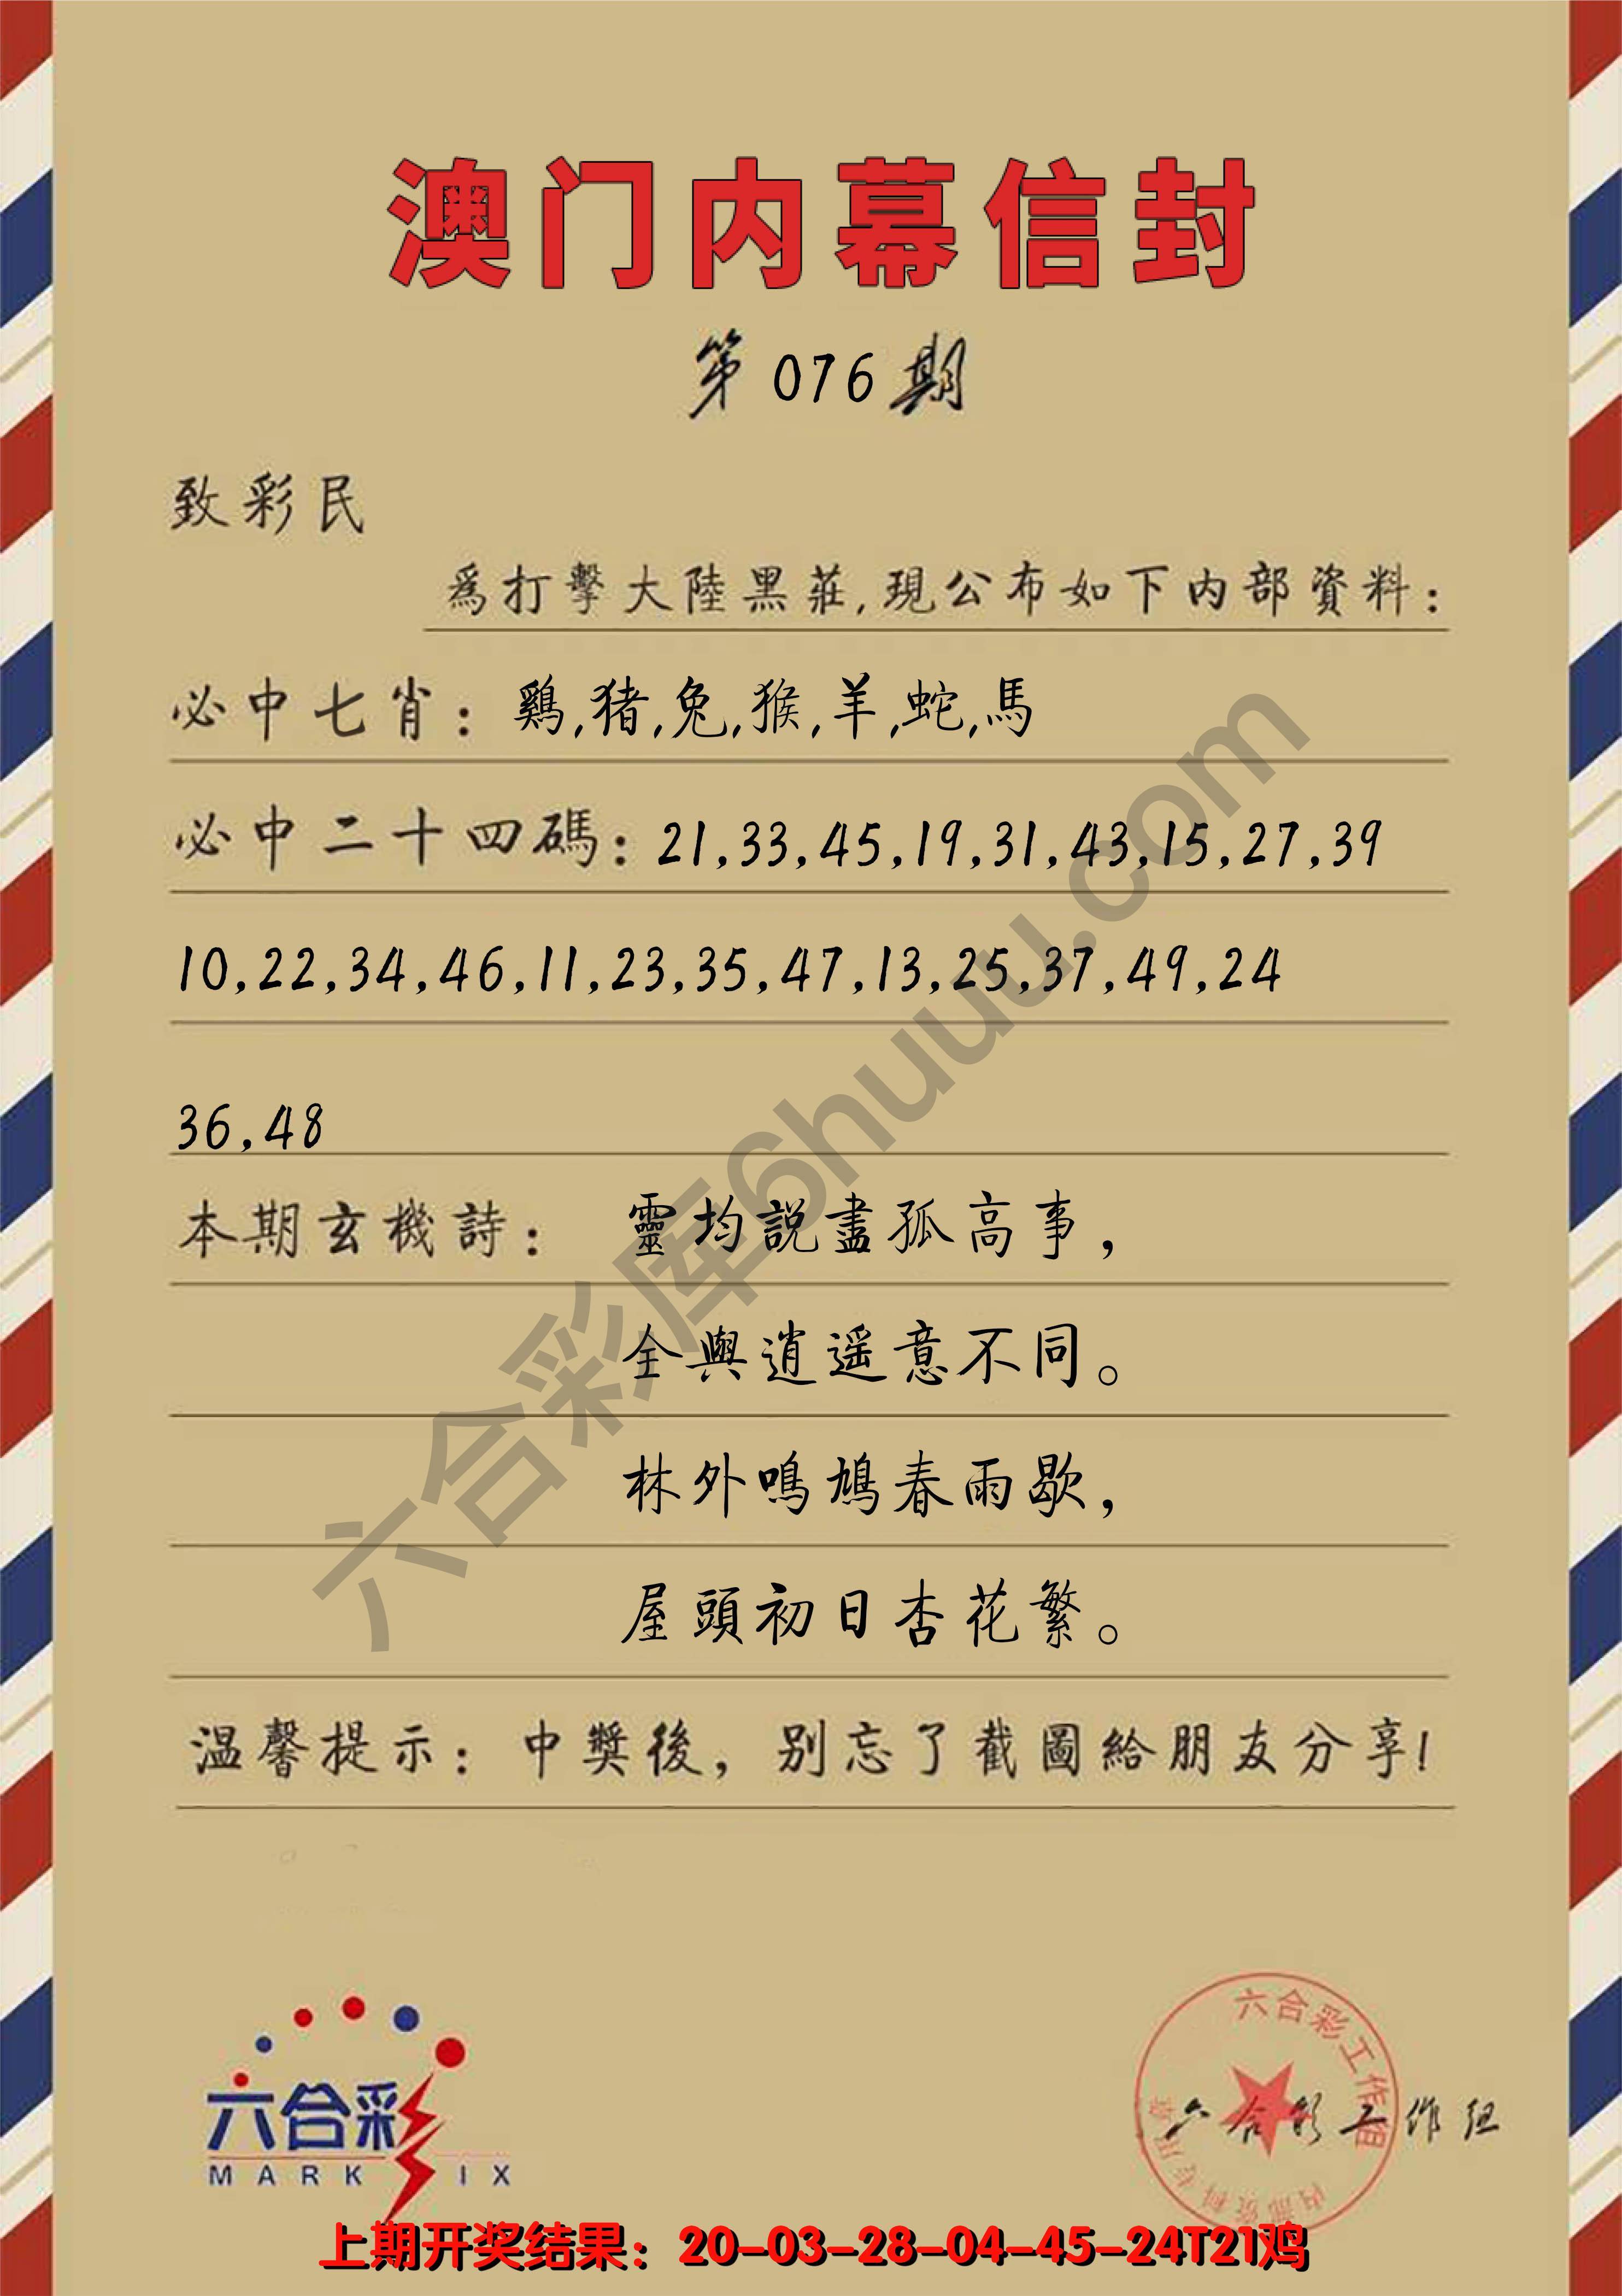 澳门内幕信封
第076期
致彩民
爲打擊大陸黑莊,現公布如下内部資料:
必中七肖: 鷄,猪,兔,猴,羊,蛇,馬
必中二十四碼: 21,33,45,19,31,43,15,27,39
10,22,34,46,11,23,35,47,13,25,37,49,24
36,48
本期玄機詩: 靈均説盡孤高事,
全與逍遥意不同。
林外鳴鳩春雨歇,
屋頭初日杏花繁。
温馨提示: 中獎後, 别忘了截圖給朋友分享!
六合彩库6huuu.com
六合彩
MARK IX
六合彩工作组
内部资料专用章
六合彩工作组
上期开奖结果: 20-03-28-04-45-24T21鸡